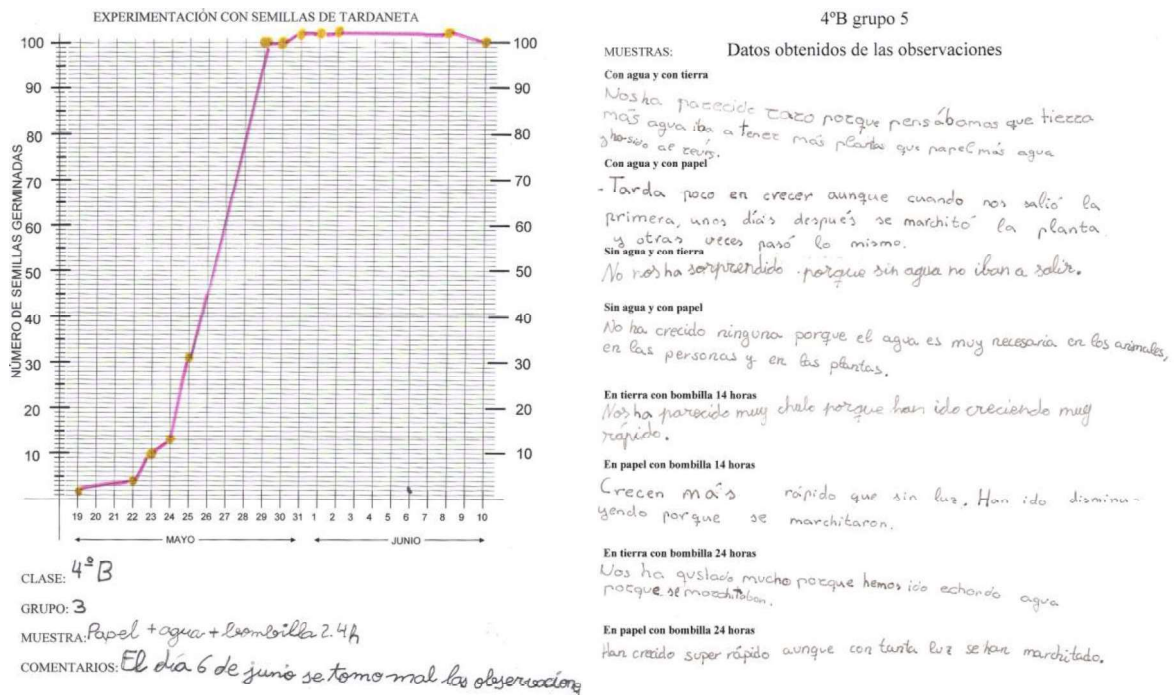 EXPERIMENTACIÓN CON SEMILLAS DE TARDANETA
NÚMERO DE SEMILLAS GERMINADAS
100 100
90 90
80 80
70 70
60 60
50 50
40 40
30 30
20 20
10 10
19 20 21 22 23 24 25 26 27 28 29 30 31 1 2 3 4 5 6 7 8 9 10
MAYO JUNIO
CLASE: 4º B
GRUPO: 3
MUESTRA: Papel + agua + bombilla 24h
COMENTARIOS: El día 6 de junio se tomo mal las observaciones
4ºB grupo 5
MUESTRAS: Datos obtenidos de las observaciones
Con agua y con tierra
Nos ha parecido raro porque pensábamos que tierra
más agua iba a tener más plantas que papel más agua
y ha sido al revés.
Con agua y con papel
- Tarda poco en crecer aunque cuando nos salió la
primera, unos días después se marchitó la planta
y otras veces pasó lo mismo.
Sin agua y con tierra
No nos ha sorprendido porque sin agua no iban a salir.
Sin agua y con papel
No ha crecido ninguna porque el agua es muy necesaria en los animales,
en las personas y en las plantas.
En tierra con bombilla 14 horas
Nos ha parecido muy chulo porque han ido creciendo muy
rápido.
En papel con bombilla 14 horas
Crecen más rápido que sin luz. Han ido disminu-
yendo porque se marchitaron.
En tierra con bombilla 24 horas
Nos ha gustado mucho porque hemos ido echando agua
porque se marchitaban.
En papel con bombilla 24 horas
Han crecido super rápido aunque con tanta luz se han marchitado.